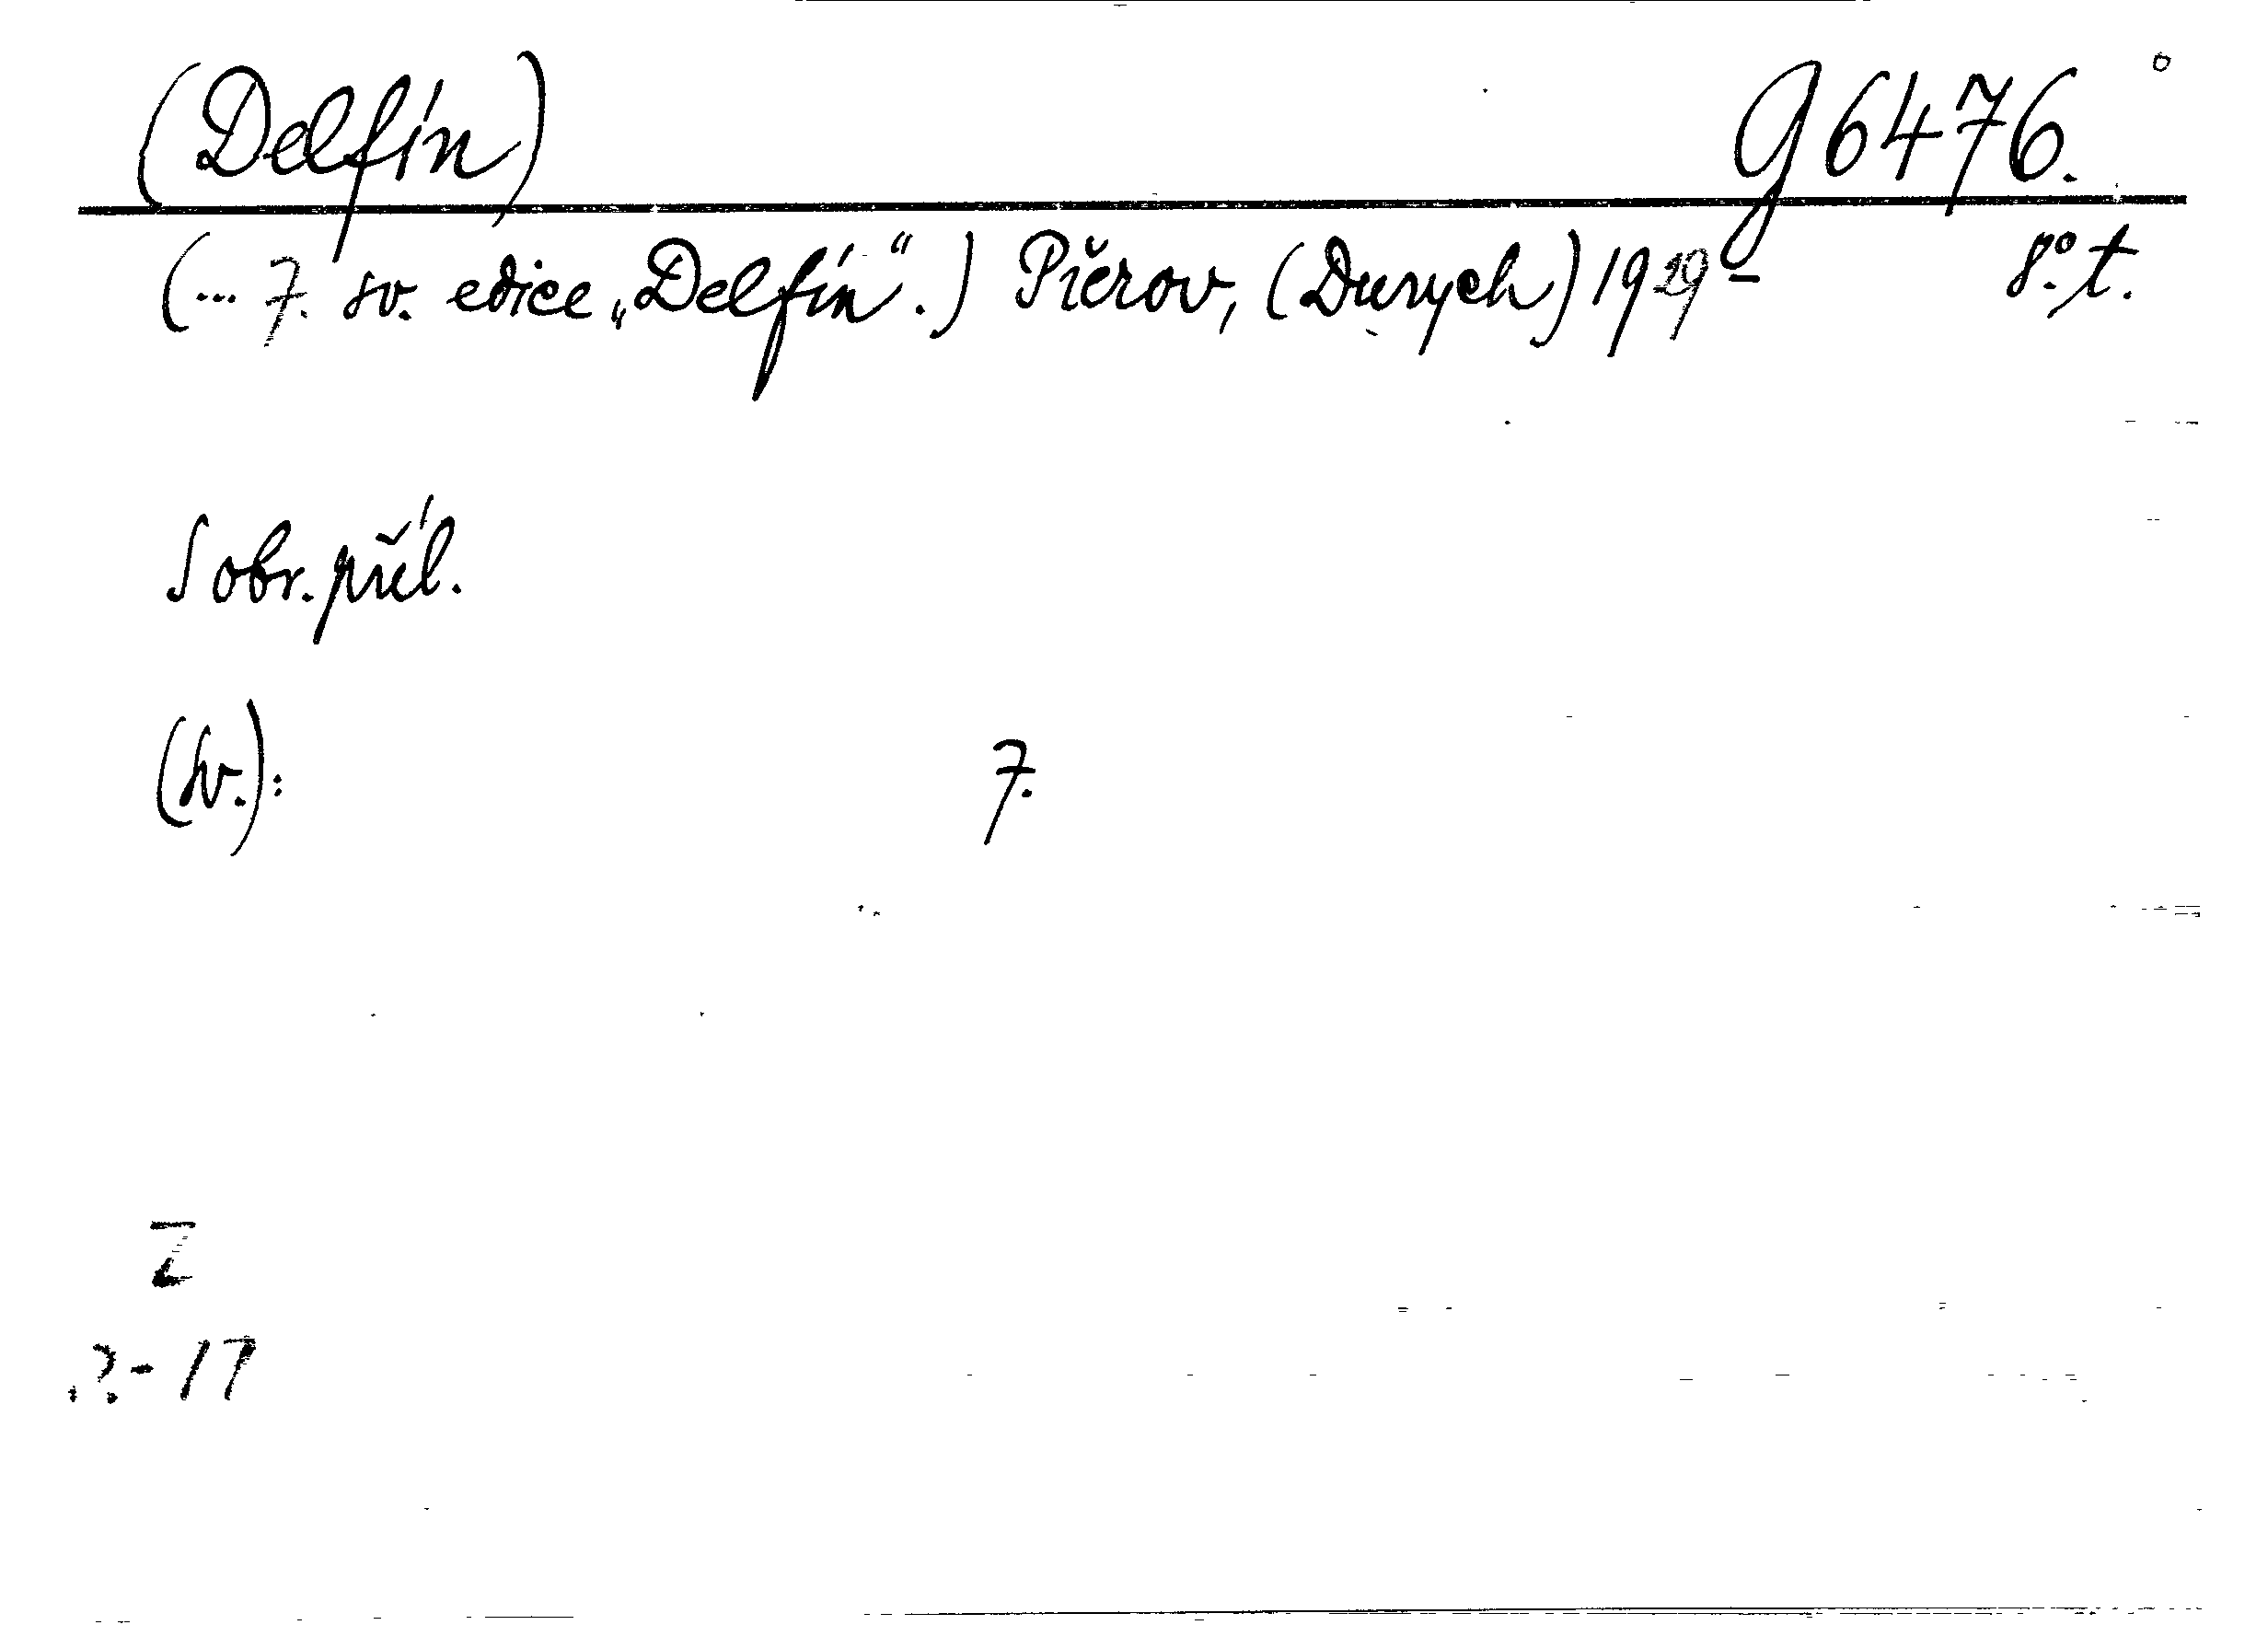 (Delfín) g 6476.
(... 7. sv. edice „Delfín“.) Přerov, (Durych) 1929- 8°. t.
S obr. příl.
(Sv.): 7.
Z
?-17